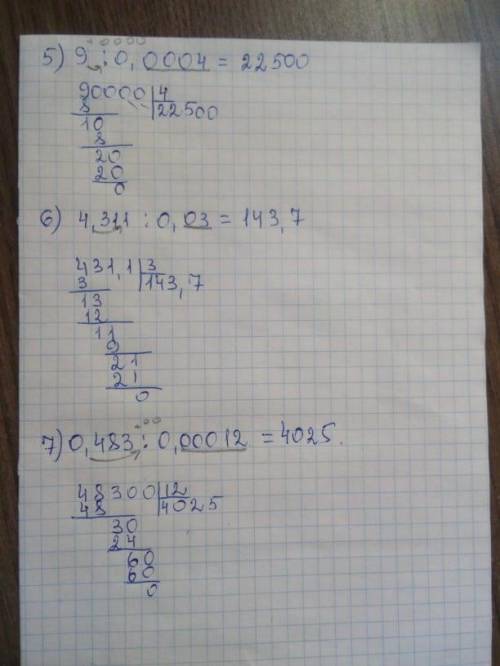 0000
5) 9 : 0,0004 = 22500
90000 | 4
8 22500
10
8
20
20
0
6) 4,311 : 0,03 = 143,7
431,1 | 3
3 143,7
13
12
11
9
21
21
0
00
7) 0,483 : 0,00012 = 4025.
48300 | 12
48 4025
30
24
60
60
0